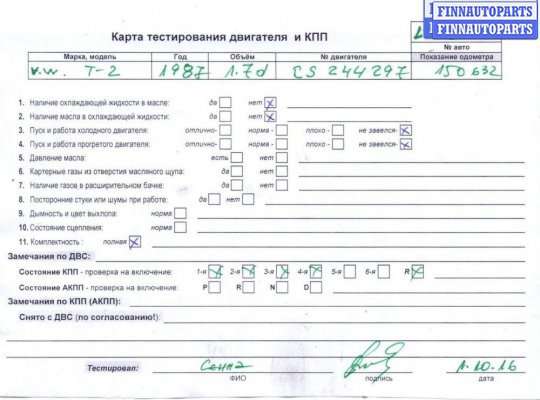 FINNAUTOPARTS
FINNAUTOPARTS
Карта тестирования двигателя и КПП
№ авто
Марка, модель Год Объём № двигателя Показание одометра
v.w. T-2 1987 1.7d CS 244297 150632
1. Наличие охлаждающей жидкости в масле: да нет
2. Наличие масла в охлаждающей жидкости: да нет
3. Пуск и работа холодного двигателя: отлично- норма - плохо - не завелся-
4. Пуск и работа прогретого двигателя: отлично- норма - плохо - не завелся-
5. Давление масла: есть нет
6. Картерные газы из отверстия масляного щупа: да нет
7. Наличие газов в расширительном бачке: да нет
8. Посторонние стуки или шумы при работе: да нет
9. Дымность и цвет выхлопа: норма
10. Состояние сцепления: норма
11. Комплектность : полная
Замечания по ДВС:
Состояние КПП - проверка на включение: 1-я 2-я 3-я 4-я 5-я 6-я R
Состояние АКПП - проверка на включение: P R N D
Замечания по КПП (АКПП):
Снято с ДВС (по согласованию!):
Тестировал: 1.10.16
ФИО подпись дата